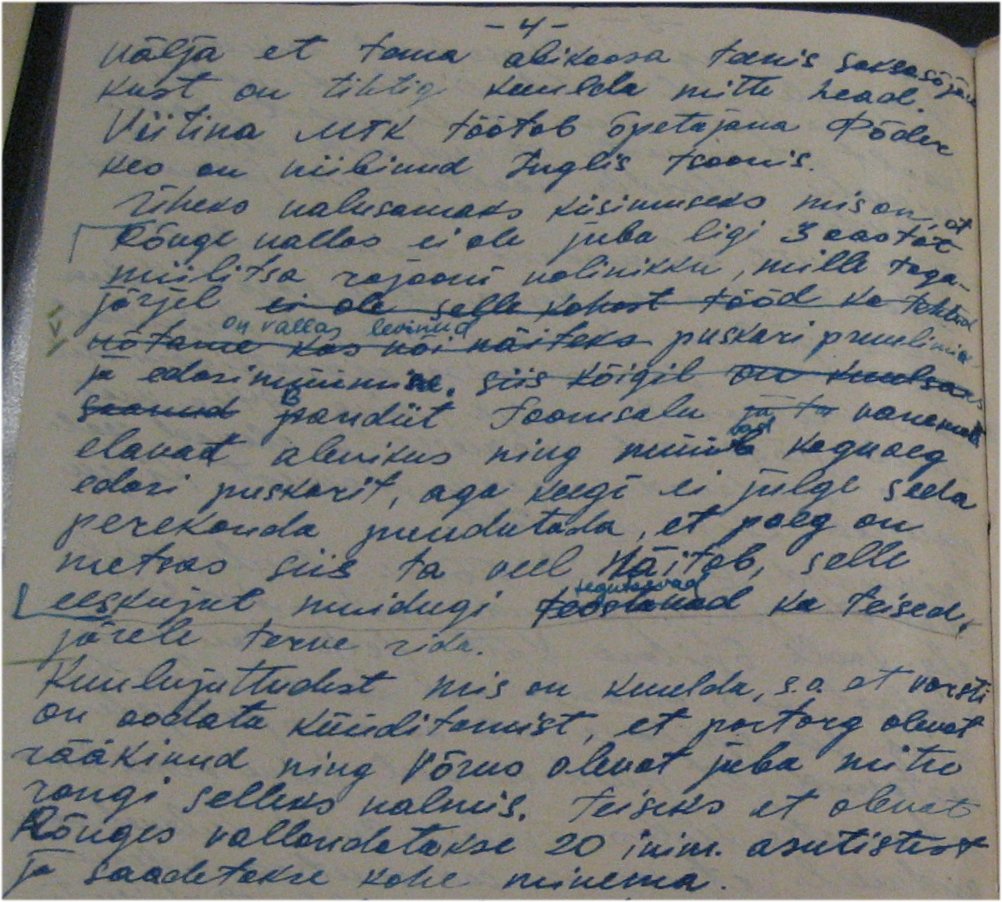 -4-
välja et tema abikaasa teenis saksasõjaväe
kust on tihtig kuulda mitte head.
Viitina MTK töötab õpetajana Põder
kes on viibinud Inglis tsoonis.
Üheks valusamaks küsimuseks mis on, et
Rõuge vallas ei ole juba ligi 3 aastat
miilitsa rajooni volinikku, mille taga-
järjel ei ole selle kohast tööd ka tehtud
on vallas levinud
võtame kas või näiteks puskari pruulimine
ja edasimüümine. siis kõigil on kuulsas
saanud Bandiit Toomsalu ja ta vanemad
elavad alevikus ning müüvad kogu aeg
edasi puskarit, aga keegi ei julge seda
perekonda puudutada, et poeg on
metsas siis ta veel näitab, selle
tegutsevad
eeskujul muidugi teostavad ka teised,
järele terve rida.
Kuulujuttudest mis on kuulda, s.o. et varsti
on oodata küüditamist, et partorg olevat
rääkinud ning Võrus olevat juba mitu
rongi selleks valmis. Teiseks et olevat
Rõuges vallandatakse 20 inim. asutistest
ja saadetakse kohe minema.